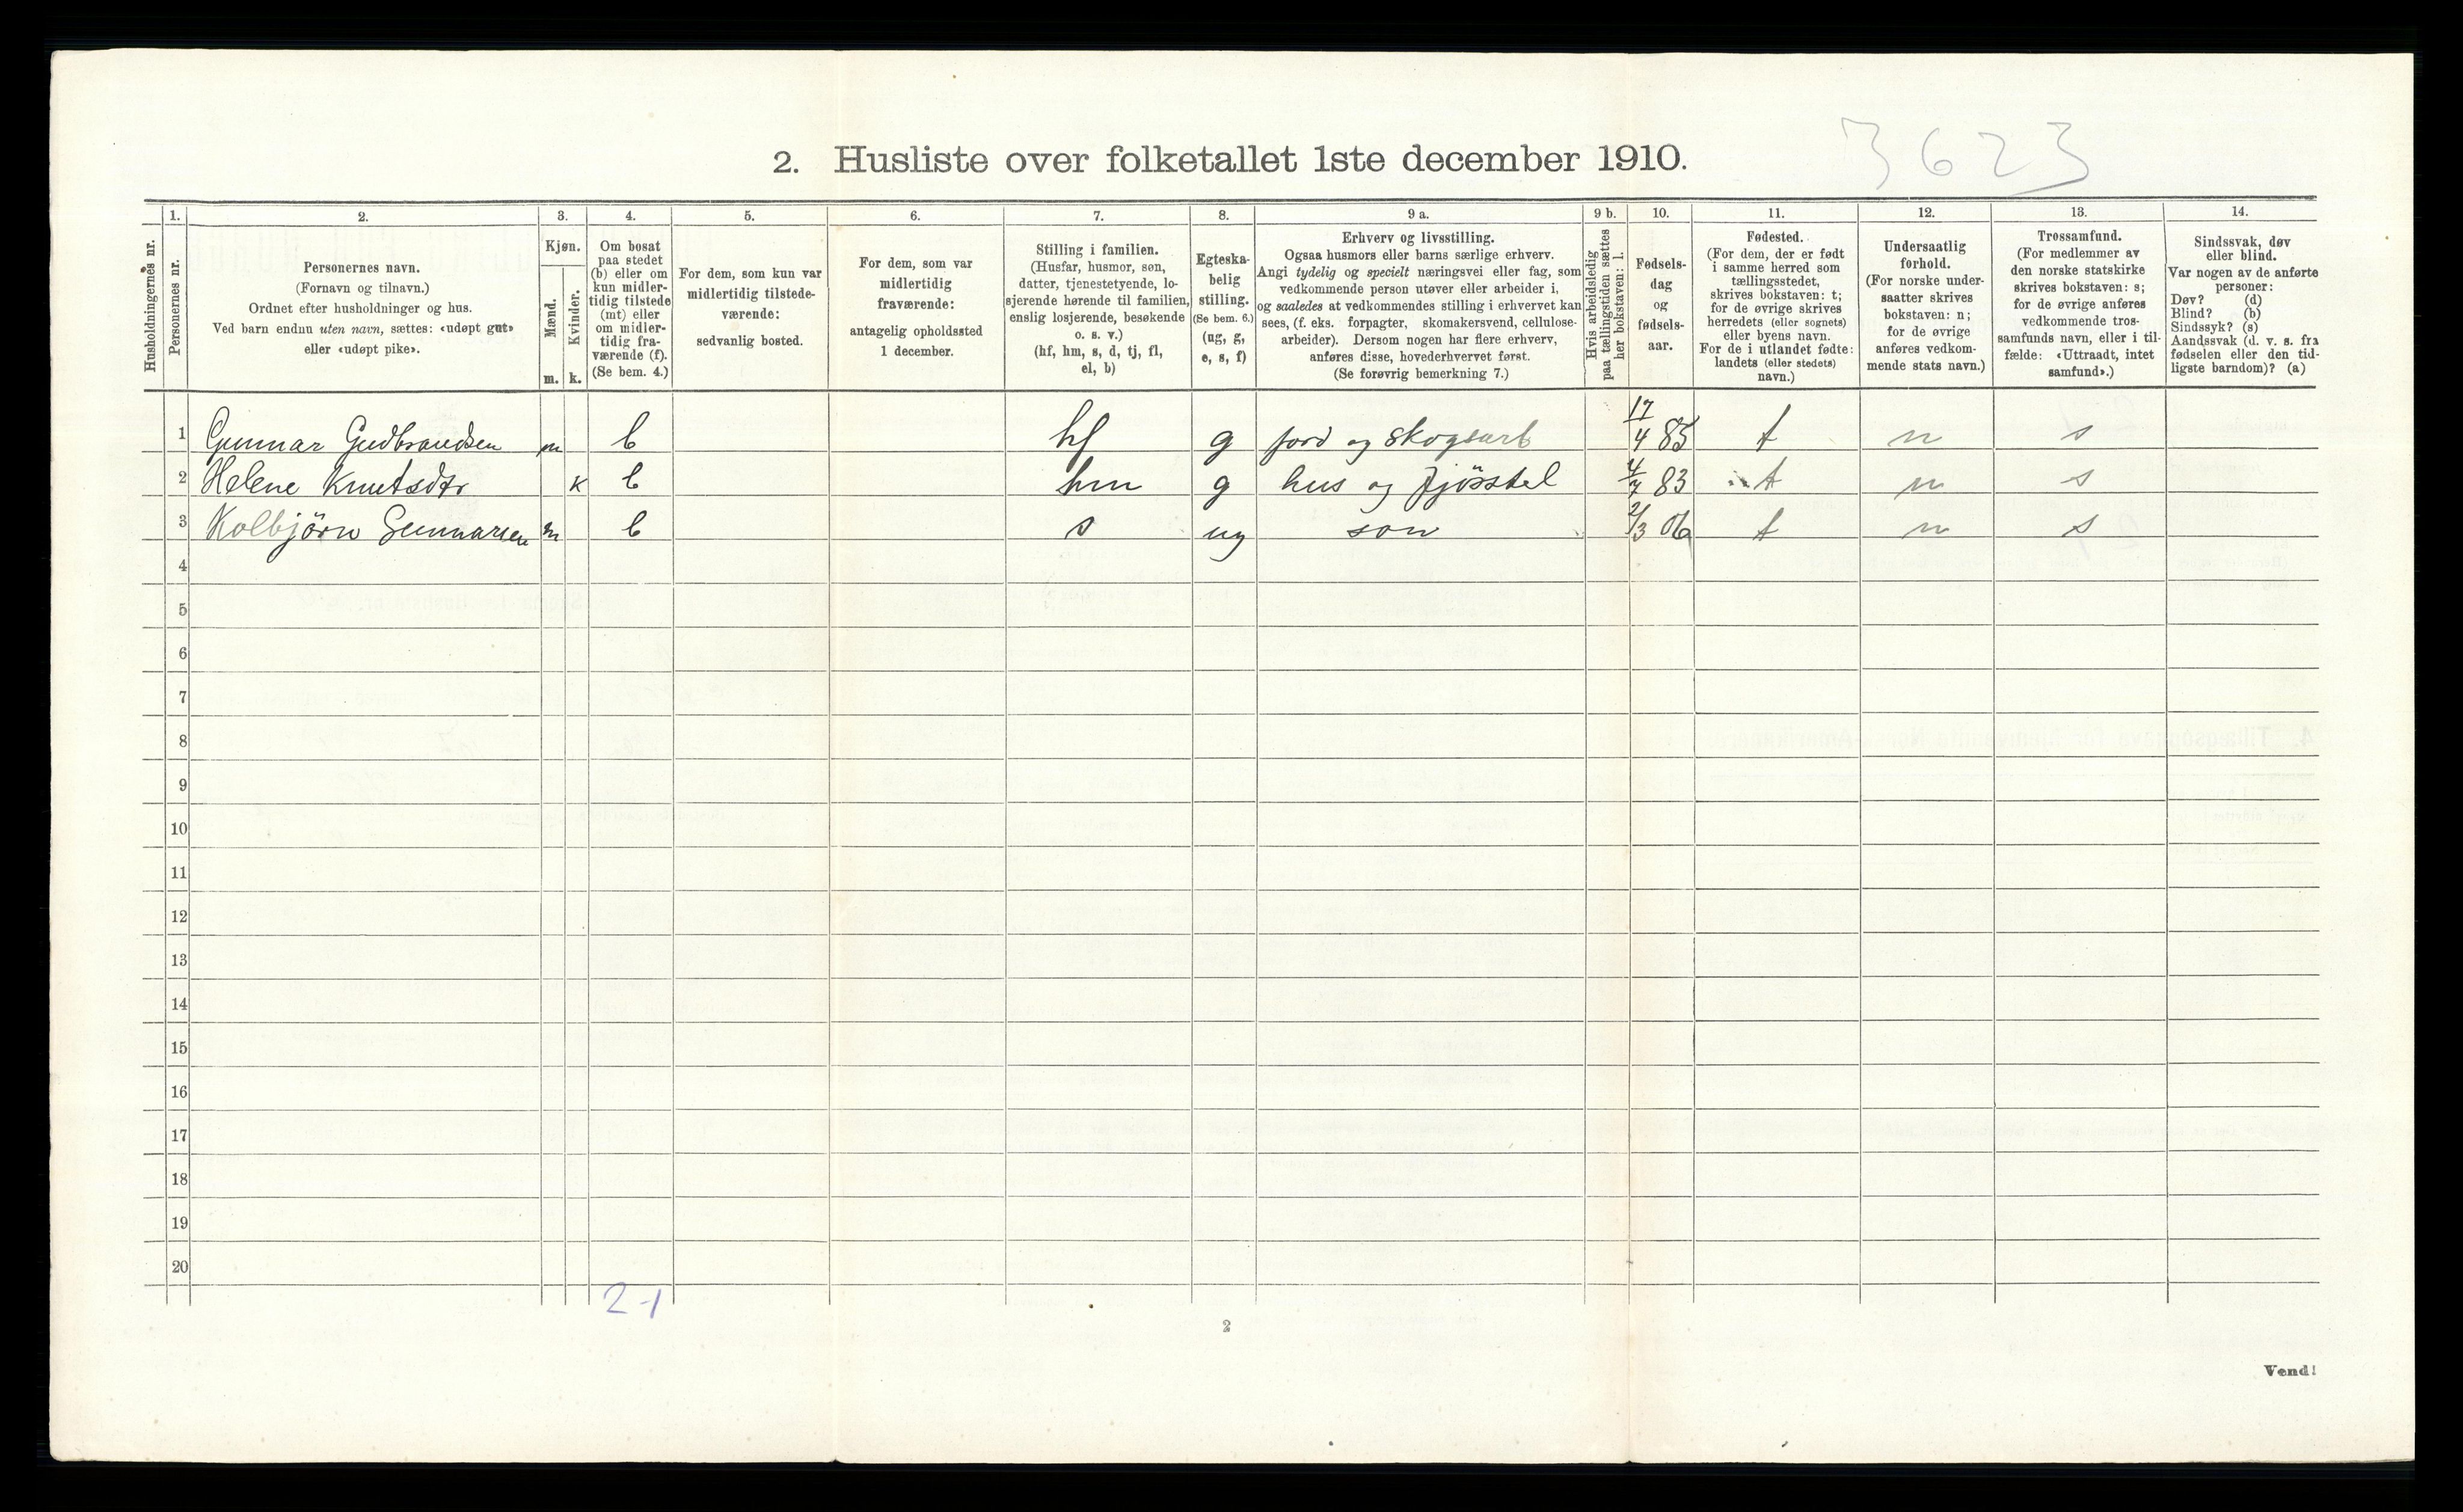 3623
2. Husliste over folketallet 1ste december 1910.
Husholdningernes nr.
1.
Personernes nr.
2.
Personernes navn.
(Fornavn og tilnavn.)
Ordnet efter husholdninger og hus.
Ved barn endnu uten navn, sættes: «udøpt gut»
eller «udøpt pike».
3.
Kjøn.
Mænd.
Kvinder.
m. k.
4.
Om bosat
paa stedet
(b) eller om
kun midler-
tidig tilstede
(mt) eller
om midler-
tidig fra-
værende (f).
(Se bem. 4.)
5.
For dem, som kun var
midlertidig tilstede-
værende:
sedvanlig bosted.
6.
For dem, som var
midlertidig
fraværende:
antagelig opholdssted
1 december.
7.
Stilling i familien.
(Husfar, husmor, søn,
datter, tjenestetyende, lo-
sjerende hørende til familien,
enslig losjerende, besøkende
o. s. v.)
(hf, hm, s, d, tj, fl,
el, b)
8.
Egteska-
belig
stilling.
(Se bem. 6.)
(ug, g,
e, s, f)
9 a.
Erhverv og livsstilling.
Ogsaa husmors eller barns særlige erhverv.
Angi tydelig og specielt næringsvei eller fag, som
vedkommende person utøver eller arbeider i,
og saaledes at vedkommendes stilling i erhvervet kan
sees, (f. eks. forpagter, skomakersvend, cellulose-
arbeider). Dersom nogen har flere erhverv,
anføres disse, hovederhvervet først.
(Se forøvrig bemerkning 7.)
9 b.
Hvis arbeidsledig
paa tællingstiden sættes
her bokstaven: l.
10.
Fødsels-
dag
og
fødsels-
aar.
11.
Fødested.
(For dem, der er født
i samme herred som
tællingsstedet,
skrives bokstaven: t;
for de øvrige skrives
herredets (eller sognets)
eller byens navn.
For de i utlandet fødte:
landets (eller stedets)
navn.)
12.
Undersaatlig
forhold.
(For norske under-
saatter skrives
bokstaven: n;
for de øvrige
anføres vedkom-
mende stats navn.)
13.
Trossamfund.
(For medlemmer av
den norske statskirke
skrives bokstaven: s;
for de øvrige anføres
vedkommende tros-
samfunds navn, eller i til-
fælde: «Uttraadt, intet
samfund».)
14.
Sindssvak, døv
eller blind.
Var nogen av de anførte
personer:
Døv? (d)
Blind? (b)
Sindssyk? (s)
Aandssvak (d. v. s. fra
fødselen eller den tid-
ligste barndom)? (a)
1 Gunnar Gudbrandsen m b hf g jord og skogsarb 17/4 85 t n s
2 Helene Knutsdtr k b hm g hus og fjösstel 4/7 83 t n s
3 Kolbjörn Gunnarsen m b s ug sön 2/3 06 t n s
4
5
6
7
8
9
10
11
12
13
14
15
16
17
18
19
20
2-1
2
Vend!